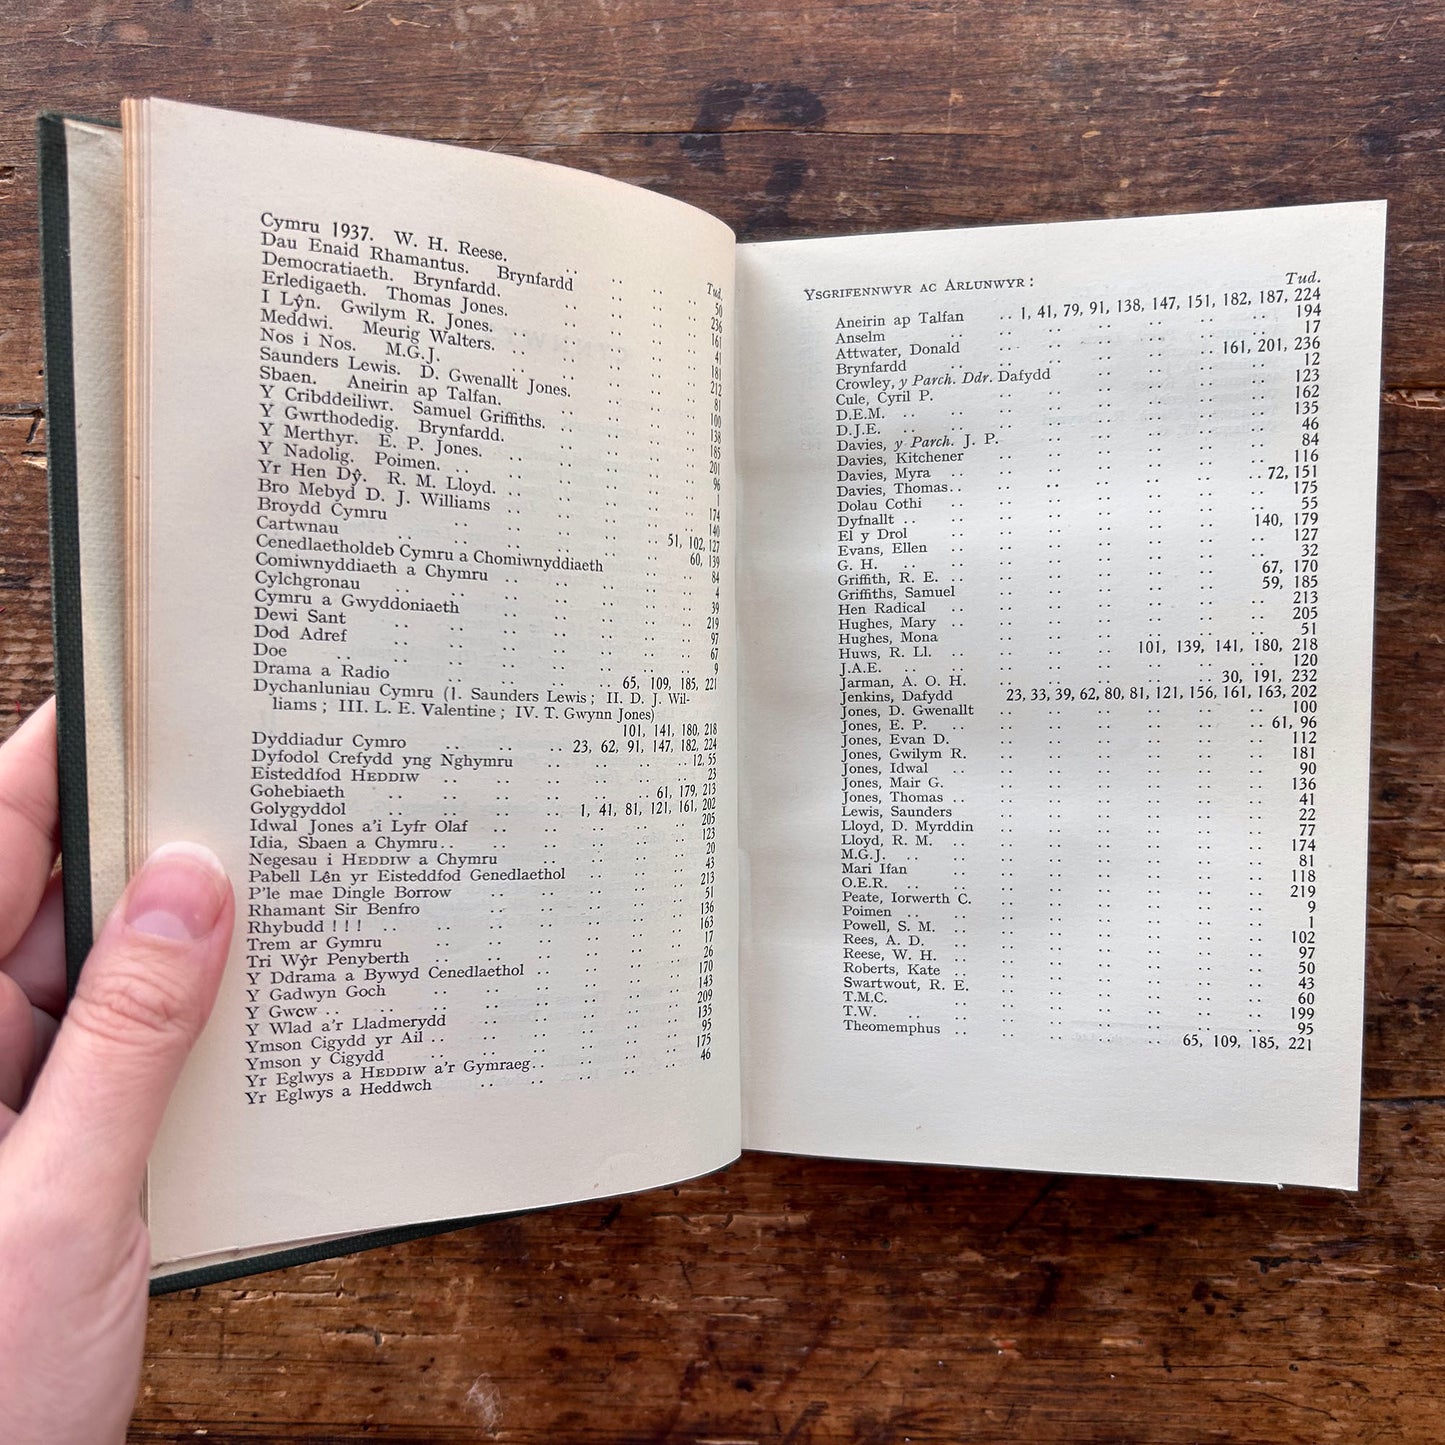 Tud.
Cymru 1937. W. H. Reese. .. .. .. 50
Dau Enaid Rhamantus. Brynfardd .. .. 236
Democratiaeth. Brynfardd. .. .. .. 161
Erledigaeth. Thomas Jones. .. .. .. 41
I Lŷn. Gwilym R. Jones. .. .. .. .. 181
Meddwi. Meurig Walters. .. .. .. .. 212
Nos i Nos. M.G.J. .. .. .. .. 81
Saunders Lewis. D. Gwenallt Jones. .. .. 100
Sbaen. Aneirin ap Talfan. .. .. .. 138
Y Cribddeiliwr. Samuel Griffiths. .. .. .. 185
Y Gwrthodedig. Brynfardd. .. .. .. 201
Y Merthyr. E. P. Jones. .. .. .. 96
Y Nadolig. Poimen. .. .. .. .. 1
Yr Hen Dŷ. R. M. Lloyd. .. .. .. .. 174
Bro Mebyd D. J. Williams .. .. .. .. 140
Broydd Cymru .. .. .. .. 51, 102, 127
Cartwnau .. .. .. .. .. 60, 139
Cenedlaetholdeb Cymru a Chomiwnyddiaeth .. .. 84
Comiwnyddiaeth a Chymru .. .. .. .. 4
Cylchgronau .. .. .. .. .. 39
Cymru a Gwyddoniaeth .. .. .. .. 219
Dewi Sant .. .. .. .. .. .. 97
Dod Adref .. .. .. .. .. .. 67
Doe .. .. .. .. .. .. .. 9
Drama a Radio .. .. .. .. 65, 109, 185, 221
Dychanluniau Cymru (I. Saunders Lewis; II. D. J. Wil-
liams; III. L. E. Valentine; IV. T. Gwynn Jones)
101, 141, 180, 218
Dyddiadur Cymro .. .. .. 23, 62, 91, 147, 182, 224
Dyfodol Crefydd yng Nghymru .. .. .. .. 12, 55
Eisteddfod HEDDIW .. .. .. .. .. 23
Gohebiaeth .. .. .. .. .. 61, 179, 213
Golygyddol .. .. .. .. 1, 41, 81, 121, 161, 202
Idwal Jones a'i Lyfr Olaf .. .. .. .. .. 205
Idia, Sbaen a Chymru.. .. .. .. .. .. 123
Negesau i HEDDIW a Chymru .. .. .. .. 20
Pabell Lên yr Eisteddfod Genedlaethol .. .. .. 43
P'le mae Dingle Borrow .. .. .. .. .. 213
Rhamant Sir Benfro .. .. .. .. .. 51
Rhybudd ! ! ! .. .. .. .. .. .. .. 136
Trem ar Gymru .. .. .. .. .. .. 163
Tri Wŷr Penyberth .. .. .. .. .. 17
Y Ddrama a Bywyd Cenedlaethol .. .. .. .. 26
Y Gadwyn Goch .. .. .. .. .. .. 170
Y Gwcw .. .. .. .. .. .. .. 143
Y Wlad a'r Lladmerydd .. .. .. .. .. 209
Ymson Cigydd yr Ail .. .. .. .. .. .. 135
Ymson y Cigydd .. .. .. .. .. .. 95
Yr Eglwys a HEDDIW a'r Gymraeg.. .. .. .. 175
Yr Eglwys a Heddwch .. .. .. .. .. 46
YSGRIFENNWYR AC ARLUNWYR : Tud.
Aneirin ap Talfan .. 1, 41, 79, 91, 138, 147, 151, 182, 187, 224
Anselm .. .. .. .. .. .. 194
Attwater, Donald .. .. .. .. .. 17
Brynfardd .. .. .. .. .. 161, 201, 236
Crowley, y Parch. Ddr. Dafydd .. .. .. .. 12
Cule, Cyril P. .. .. .. .. .. 123
D.E.M. .. .. .. .. .. .. 162
D.J.E. .. .. .. .. .. .. 135
Davies, y Parch. J. P. .. .. .. .. .. 46
Davies, Kitchener .. .. .. .. .. 84
Davies, Myra .. .. .. .. .. .. 116
Davies, Thomas .. .. .. .. .. .. 72, 151
Dolau Cothi .. .. .. .. .. .. 175
Dyfnallt .. .. .. .. .. .. .. 55
El y Drol .. .. .. .. .. .. 140, 179
Evans, Ellen .. .. .. .. .. .. 127
G. H. .. .. .. .. .. .. .. 32
Griffith, R. E. .. .. .. .. .. .. 67, 170
Griffiths, Samuel .. .. .. .. .. 59, 185
Hen Radical .. .. .. .. .. .. 213
Hughes, Mary .. .. .. .. .. .. 205
Hughes, Mona .. .. .. .. .. .. 51
Huws, R. Ll. .. .. .. .. 101, 139, 141, 180, 218
J.A.E. .. .. .. .. .. .. .. 120
Jarman, A. O. H. .. .. .. .. .. 30, 191, 232
Jenkins, Dafydd 23, 33, 39, 62, 80, 81, 121, 156, 161, 163, 202
Jones, D. Gwenallt .. .. .. .. .. 100
Jones, E. P. .. .. .. .. .. .. 61, 96
Jones, Evan D. .. .. .. .. .. 112
Jones, Gwilym R. .. .. .. .. .. 181
Jones, Idwal .. .. .. .. .. .. 90
Jones, Mair G. .. .. .. .. .. 136
Jones, Thomas .. .. .. .. .. .. 41
Lewis, Saunders .. .. .. .. .. 22
Lloyd, D. Myrddin .. .. .. .. .. 77
Lloyd, R. M. .. .. .. .. .. .. 174
M.G.J. .. .. .. .. .. .. .. 81
Mari Ifan .. .. .. .. .. .. 118
O.E.R. .. .. .. .. .. .. .. 219
Peate, Iorwerth C. .. .. .. .. .. 9
Poimen .. .. .. .. .. .. .. 1
Powell, S. M. .. .. .. .. .. .. 102
Rees, A. D. .. .. .. .. .. .. 97
Reese, W. H. .. .. .. .. .. .. 50
Roberts, Kate .. .. .. .. .. .. 43
Swartwout, R. E. .. .. .. .. .. 60
T.M.C. .. .. .. .. .. .. 199
T.W. .. .. .. .. .. .. .. 95
Theomemphus .. .. .. .. .. 65, 109, 185, 221